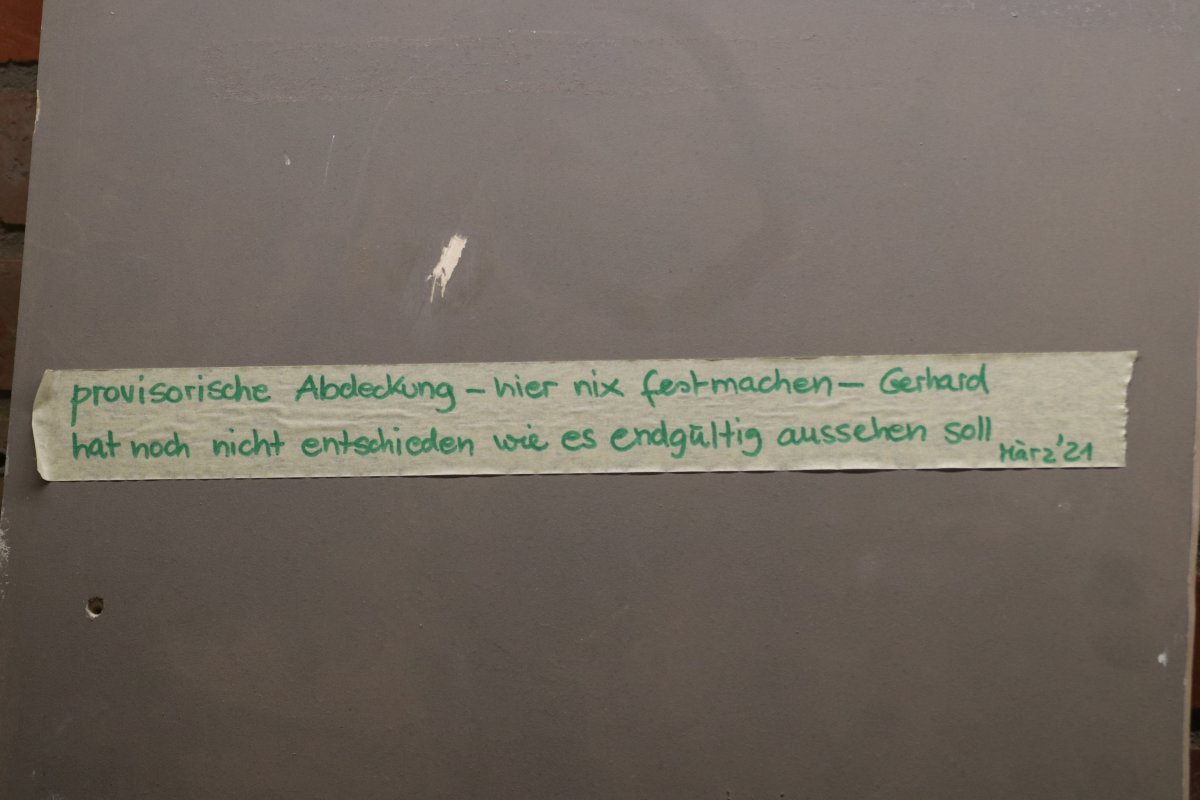 provisorische Abdeckung – hier nix festmachen – Gerhard
hat noch nicht entschieden wie es endgültig aussehen soll
März '21